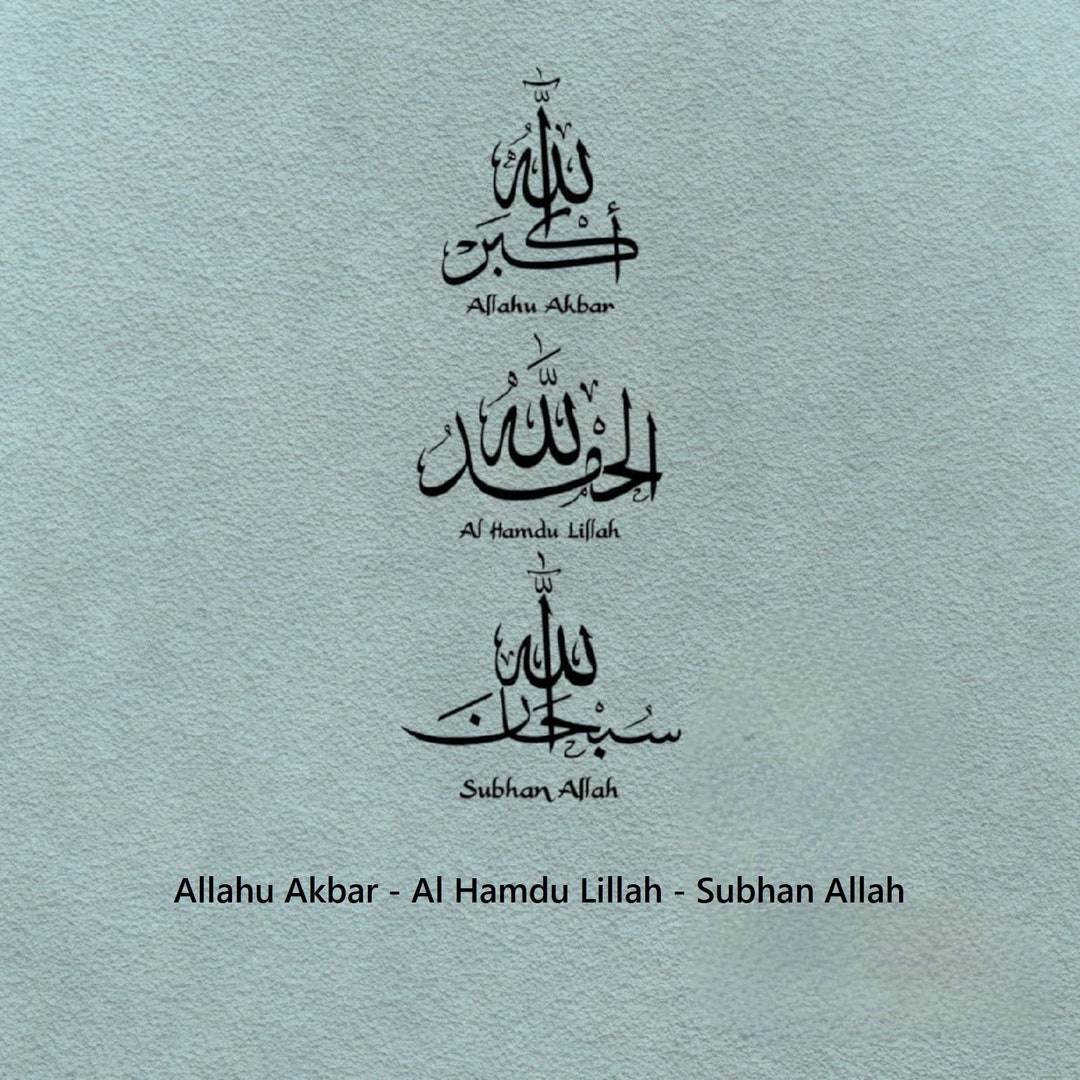 الله أكبر
Allahu Akbar
الحمد لله
Al Hamdu Lillah
سبحان الله
Subhan Allah
Allahu Akbar - Al Hamdu Lillah - Subhan Allah